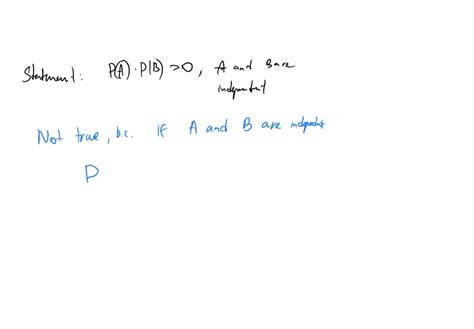 Statement: P(A) · P(B) >0, A and B are
independent
Not true, b.c. If A and B are independent
P